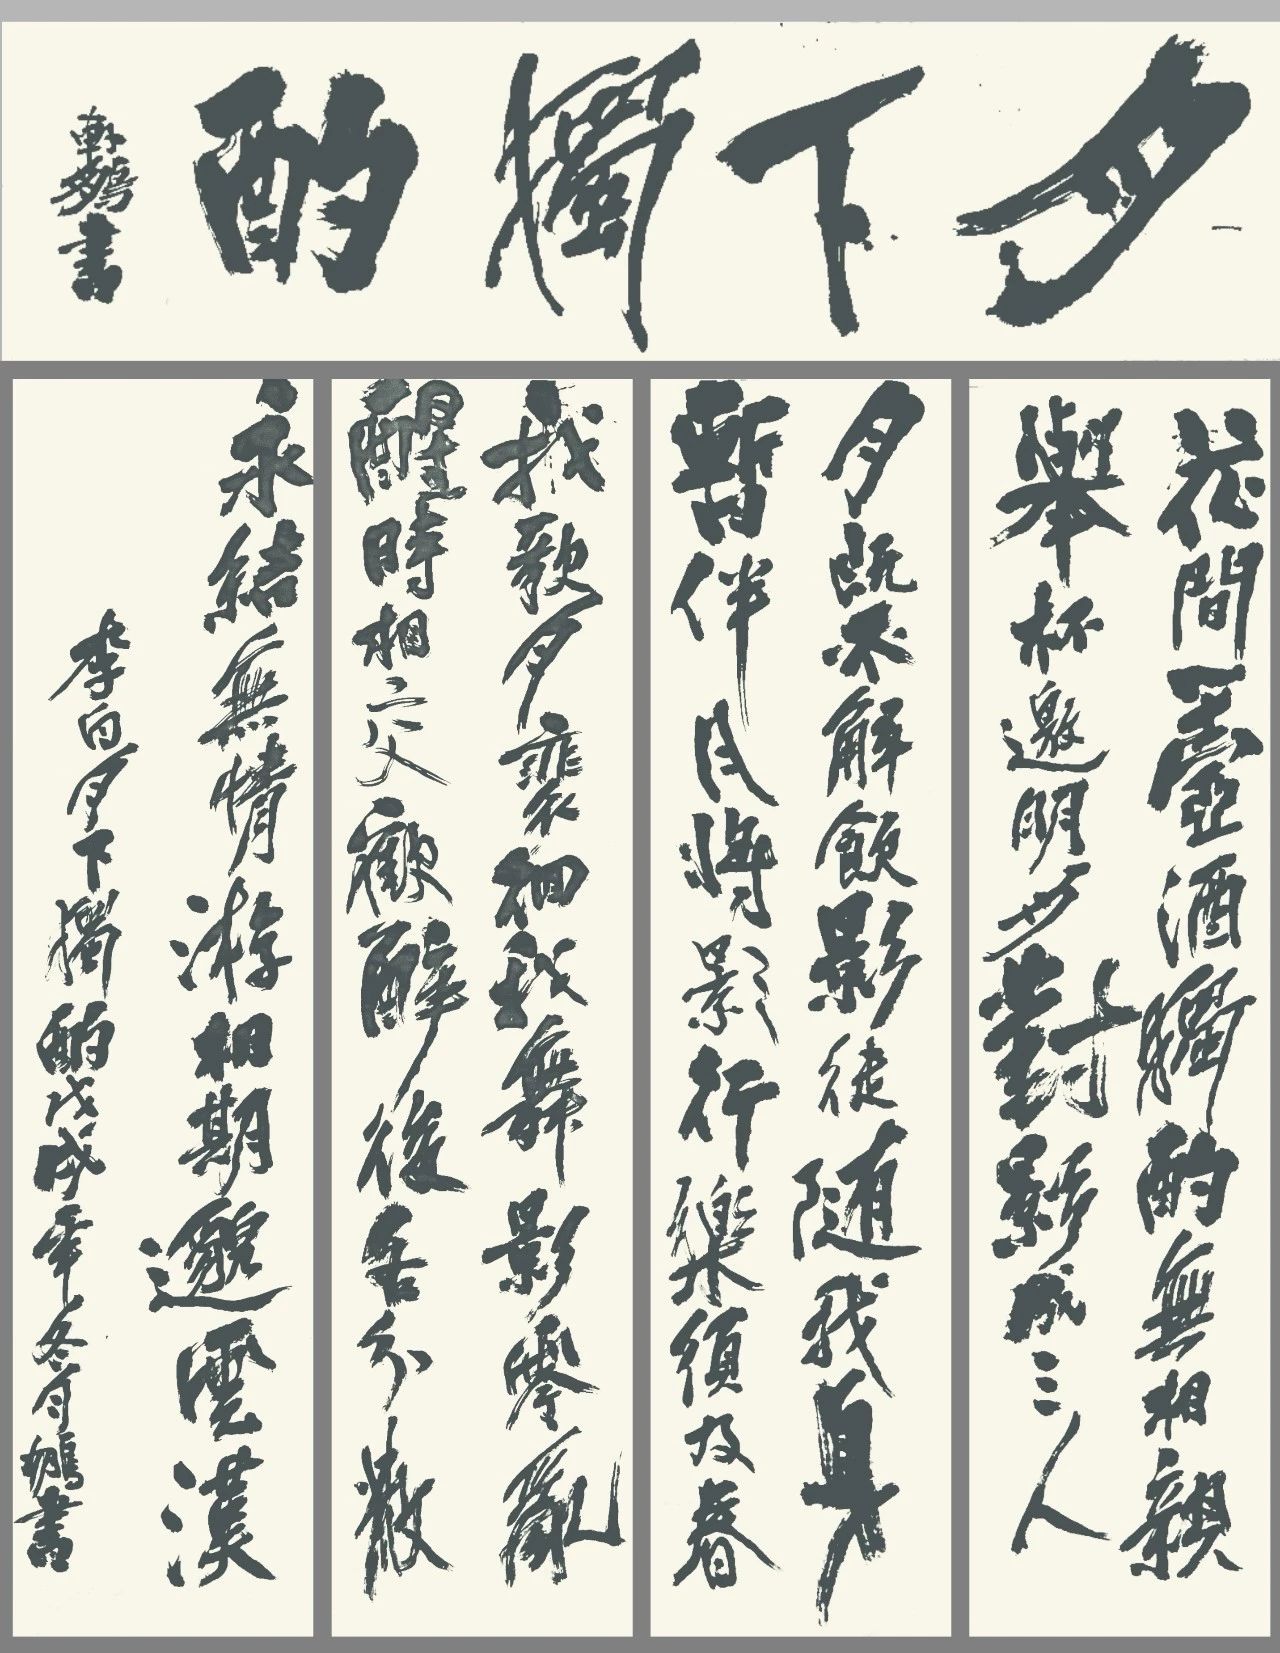 月下獨酌
軒鵷書
花間壺酒獨酌無相親
舉杯邀明月對影成三人
月既不解飲影徒隨我身
暫伴月將影行樂須及春
我歌月裵徊我舞影零亂
醒時相交歡醉後各分散
永結無情游相期邈雲漢
李白月下獨酌戊戌年冬月鵷書